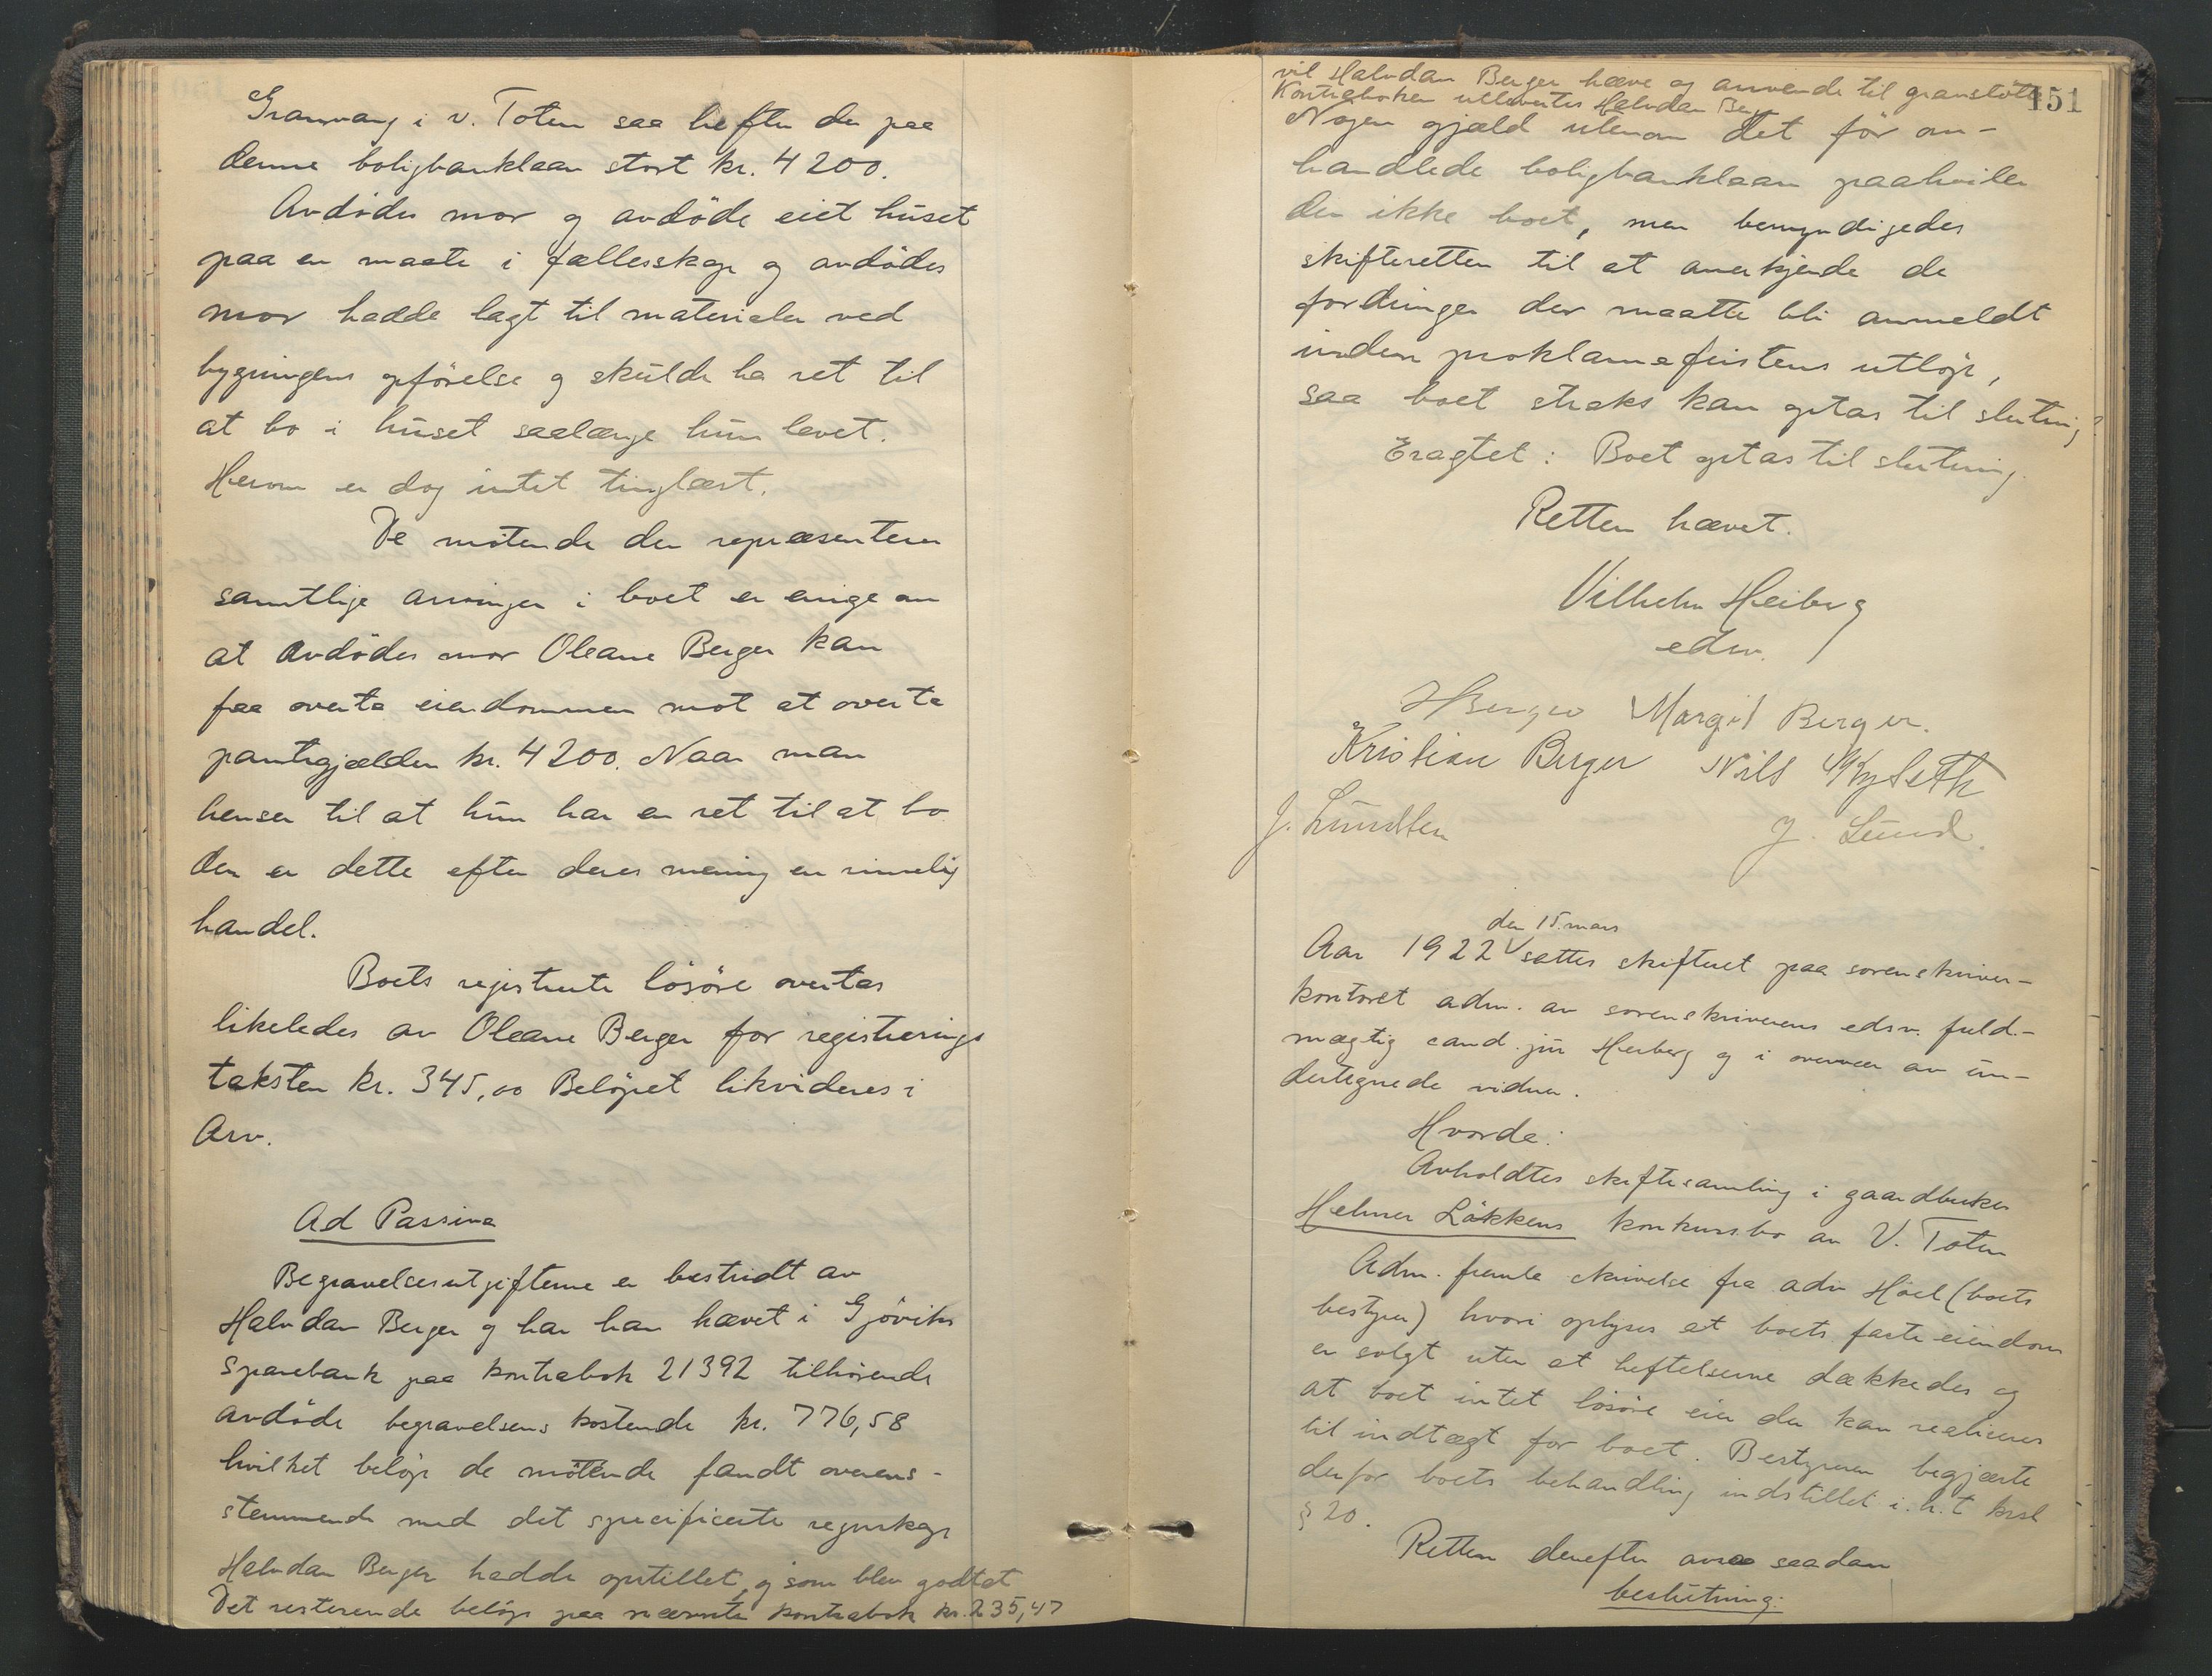 Granvang i v. Toten saa hefter der paa
denne boligbanklaan stort kr. 4200.
Avdödes mor og avdöde eiet huset
paa en maate i fællesskap og avdödes
mor hadde lagt til materialer ved
bygningens opförelse og skulde ha ret til
at bo i huset saalænge hun levet.
Herom er dog intet tinglæst.
De mötende der repræsenterer
samtlige arvinger i boet er enige om
at avdödes mor Oleane Berger kan
faa overta eiendommen mot at overta
pantegjælden kr. 4200. Naar man
henser til at hun har en ret til at bo
der er dette efter deres mening en rimelig
handel.
Boets registrerte lösöre overtas
likeledes av Oleane Berger for registrerings
taksten kr. 345,00 Belöpet likvideres i
Arv.
Ad Passiva
Begravelsesutgifterne er bestridt av
Halvdan Berger og har han hævet i Gjöviks
Sparebank paa kontrabok 21392 tilhörende
avdöde begravelsens kostende kr. 776,58
hvilket belöp de mötende fandt overens-
stemmende med det specificerte regnskap
Halvdan Berger hadde opstillet, og som blev godtat
Det resterende belöp paa nævnte kontrabok kr. 235,47
151
vil Halvdan Berger hæve og anvende til gravstötte
Kontraboken utlevertes Halvdan Berger
Nogen gjæld utenom det för om-
handlede boligbanklaan paahviler
der ikke boet, men bemyndigedes
skifteretten til at anerkjende de
fordringer der maatte bli anmeldt
inden proklamafristens utlöp,
saa boet straks kan optas til slutning
Eragtet: Boet optas til slutning
Retten hævet.
Vilhelm Heiberg
edsv.
HBerger Margit Berger.
Kristian Berger Nils Mykseth
J. Lundsten J. Lund.
den 15. mars
Aar 1922 √ sattes skifteret paa sorenskriver-
kontoret adm. av sorenskriverens edsv. fuld-
mægtig cand. jur Heiberg og i overvær av un-
dertegnede vidner.
Hvorda:
Avholdtes skiftesamling i gaardbruker
Helmer Lökkens konkursbo av V. Toten
Adm. fremla skrivelse fra adv Hoel (boets
bestyrer) hvori oplyses at boets faste eiendom
er solgt uten at heftelserne dækkedes og
at boet intet lösöre eier der kan realiseres
til indtægt for boet. Bestyreren begjærte
derfor boets behandling indstillet i. h. t krsl
§ 20.
Retten derefter avsa saadan
beslutning: